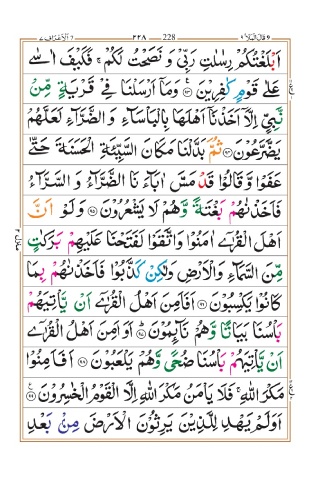 ٧ الاعراف ٢٢٨ 228 قال الملا ٩
اَبْلَغْتُكُمْ رِسٰلٰتِ رَبِّیْ وَ نَصَحْتُ لَكُمْ ۚ فَكَیْفَ اٰسٰی
عَلٰی قَوْمٍ كٰفِرِیْنَ ۝۹۳ وَمَاۤ اَرْسَلْنَا فِیْ قَرْیَةٍ مِّنْ
نَّبِیٍّ اِلَّاۤ اَخَذْنَاۤ اَهْلَهَا بِالْبَاْسَآءِ وَ الضَّرَّآءِ لَعَلَّهُمْ
یَضَّرَّعُوْنَ ۝۹۴ ثُمَّ بَدَّلْنَا مَكَانَ السَّیِّئَةِ الْحَسَنَةَ حَتّٰی
عَفَوْا وَّ قَالُوْا قَدْ مَسَّ اٰبَآءَ نَا الضَّرَّآءُ وَ السَّرَّآءُ
فَاَخَذْنٰهُمْ بَغْتَةً وَّ هُمْ لَا یَشْعُرُوْنَ ۝۹۵ وَ لَوْ اَنَّ
اَهْلَ الْقُرٰۤی اٰمَنُوْا وَ اتَّقَوْا لَفَتَحْنَا عَلَیْهِمْ بَرَكٰتٍ
مِّنَ السَّمَآءِ وَ الْاَرْضِ وَ لٰكِنْ كَذَّبُوْا فَاَخَذْنٰهُمْ بِمَا
كَانُوْا یَكْسِبُوْنَ ۝۹۶ اَفَاَمِنَ اَهْلُ الْقُرٰۤی اَنْ یَّاْتِیَهُمْ
بَاْسُنَا بَیَاتًا وَّ هُمْ نَآىِٕمُوْنَ ۝۹۷ اَوَ اَمِنَ اَهْلُ الْقُرٰۤی
اَنْ یَّاْتِیَهُمْ بَاْسُنَا ضُحًی وَّ هُمْ یَلْعَبُوْنَ ۝۹۸ اَفَاَمِنُوْا
مَكْرَ اللّٰهِ ۚ فَلَا یَاْمَنُ مَكْرَ اللّٰهِ اِلَّا الْقَوْمُ الْخٰسِرُوْنَ ۝۹۹
اَوَ لَمْ یَهْدِ لِلَّذِیْنَ یَرِثُوْنَ الْاَرْضَ مِنْۢ بَعْدِ